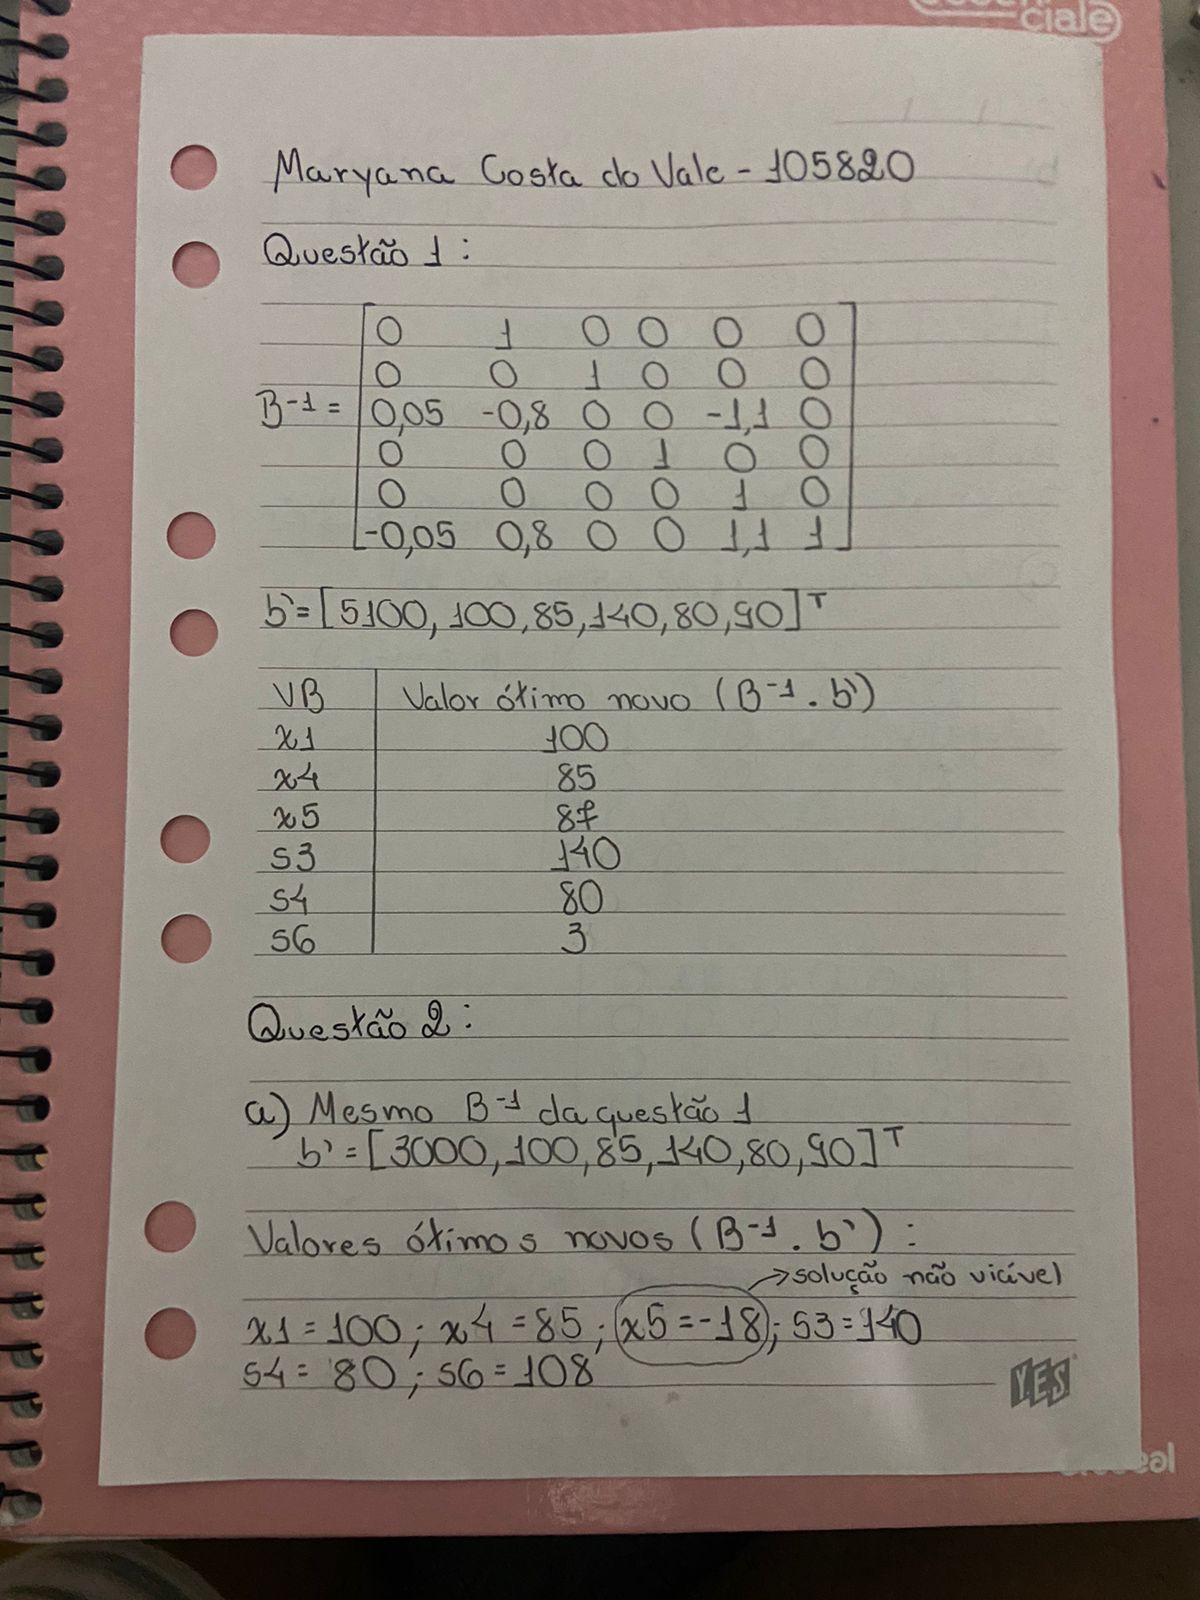 ciale
Maryana Costa do Vale - 105820
Questão 1:
B-1 =
0 1 0 0 0 0
0 0 1 0 0 0
0,05 -0,8 0 0 -1,1 0
0 0 0 1 0 0
0 0 0 0 1 0
-0,05 0,8 0 0 1,1 1
b'= [5100, 100, 85, 140, 80, 90]T
VB Valor ótimo novo (B-1 . b')
x1 100
x4 85
x5 87
S3 140
S4 80
S6 3
Questão 2:
a) Mesmo B-1 da questão 1
b' = [3000, 100, 85, 140, 80, 90]T
Valores ótimos novos (B-1 . b') :
→ solução não viável
x1 = 100; x4 = 85; x5 = -18; S3 = 140
S4 = 80; S6 = 108
YES